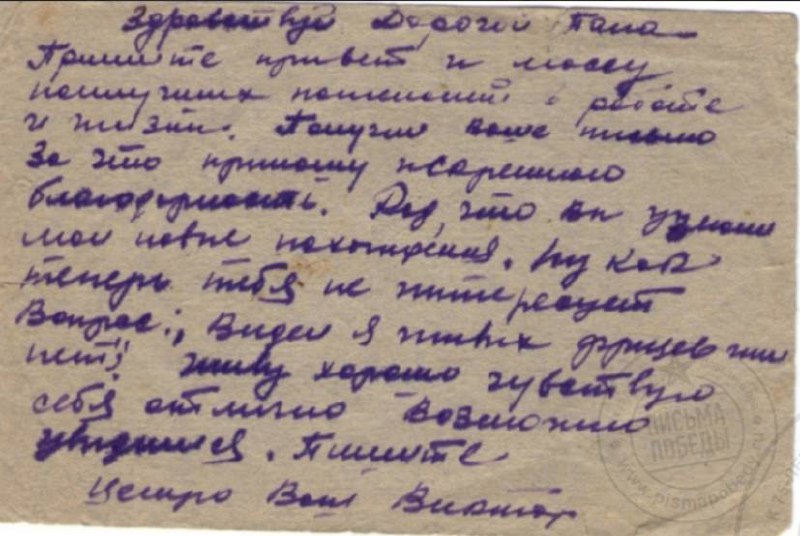 Здравствуй Дорогой Папа
Примите привет и массу
наилучших пожеланий в работе
и жизни. Получил ваше письмо
За что приношу
благодарность. Рад, что вы узнали
мои новые похождения. Ну как
теперь тебя не интересует
Вопрос: „Видел я живых фрицев или
нет“! Живу хорошо чувствую
себя отлично Возможно
увидимся. Пишите
Целую Ваш Виктор
ПИСЬМА
ПОБЕДЫ
www.pismapobedy.ru